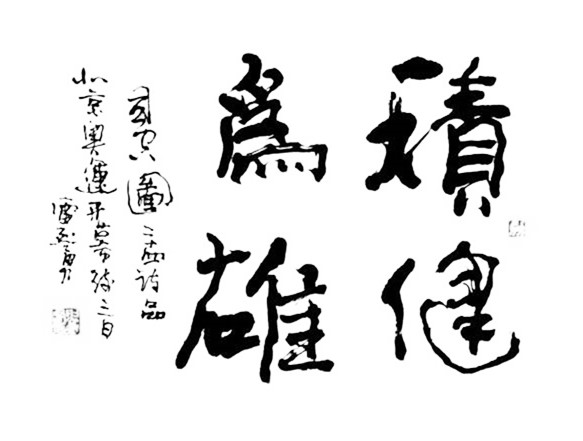 積健
為雄
司空圖二十四詩品
北京奥運开幕後三日